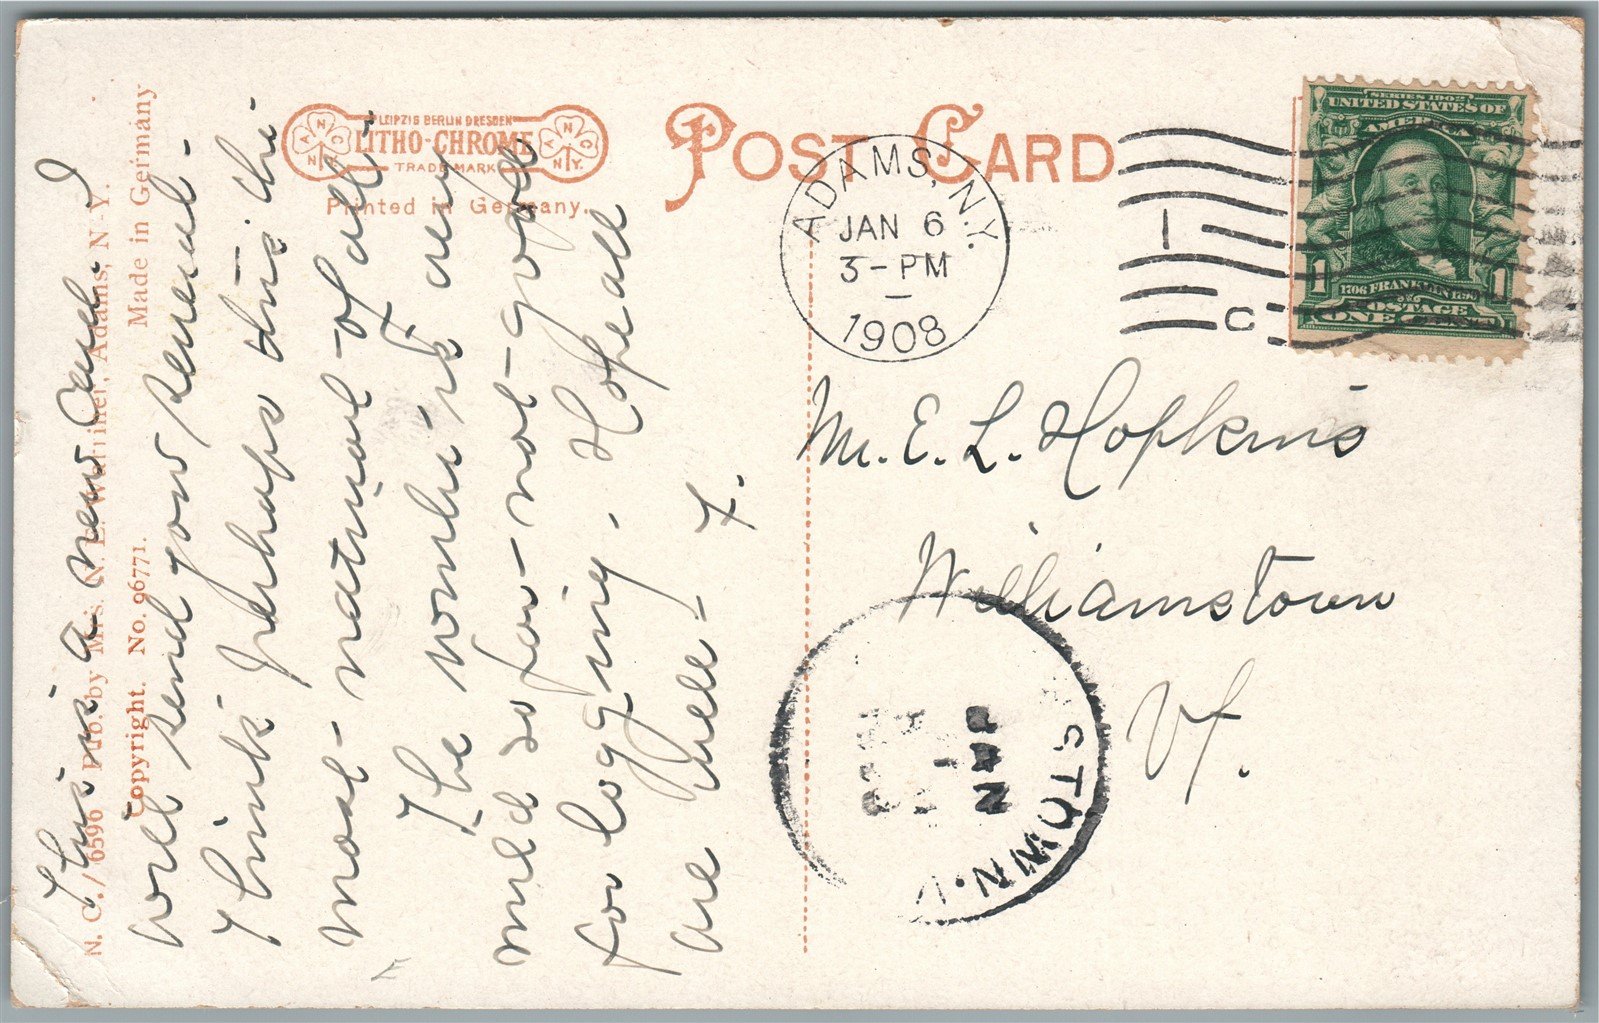 N. C. / 6596 Pub. by Mrs. N. E. Adams, N. Y.
Copyright. No. 96771. Made in Germany
LEIPZIG BERLIN DRESDEN
LITHO-CHROME
TRADE MARK
Printed in Germany.
POST CARD
ADAMS, N.Y.
JAN 6
3-PM
1908
1
C
SERIES 1902
UNITED STATES OF
AMERICA
1706 FRANKLIN 1790
1 POSTAGE 1
ONE
This is a new card &
will send you several-
I think perhaps this the
most-natural-of all-
The weather is very
mild so far-not-good
for logging. Hope all
are well- F.
M. E. L. Hopkins
Williamstown
Vt.
JAN
STOWN.V